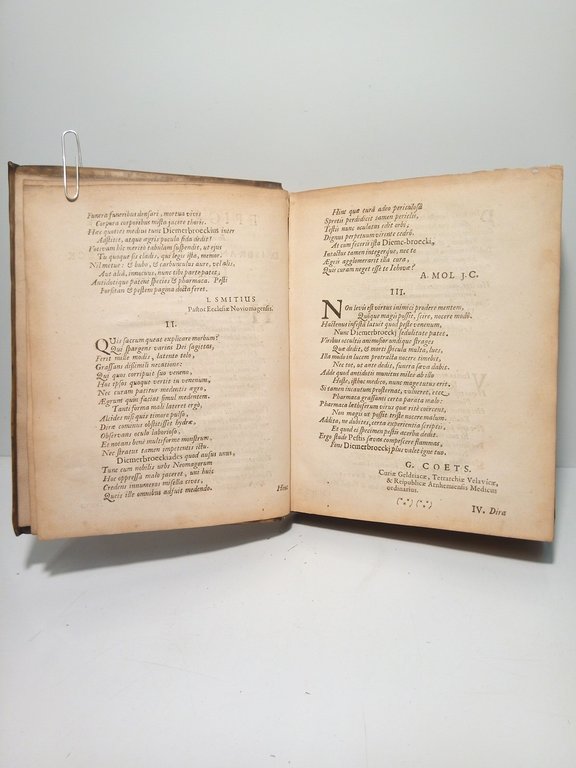 Funera funeribus densari, mortua vivis
Corpora corporibus mista jacere thoris.
Hac quoties medius tunc Diemerbroeckius inter
Adstitit, atque ægris pocula fida dedit!
Focivam hic meritò tabulam suspendit, ut ejus
Tu quoque sis cladis, qui legis ista, memor.
Nil metue: & bubo, & carbunculus aure, vel alis,
Aut aliâ, innocuus, nunc tibi parte patea,
Antidotoque patens species & pharmaca. Pesti
Forsitan & pestem pagina docta feret.
I. SMITIUS
Pastor Ecclesiæ Noviomagensis.
II.
QUis sacrum queat explicare morbum?
Qui spargens varias Dei sagittas,
Ferit mille modis, latente telo,
Grassans dissimili necatione:
Qui quos corripuit suo veneno,
Hos ipsos quoque vertit in venenum,
Nec curam patitur medentis ægro,
Ægrum quin faciat simul medentem.
Tanti forma mali lateret ergò,
Alcides nisi quis timore pulso,
Diræ comminus obstitisset hydræ,
Observans oculo laborioso,
Et notans bene multiforme monstrum,
Nec stratus tamen impetentis ictu.
Diemerbroeckiades quod ausus unus,
Tunc cum nobilis urbs Neomagorum
Hoc oppressa malo jaceret, uni huic
Credens innumeros misella cives,
Queis ille omnibus adfuit medendo.
Hinc
Hinc que curâ adeo periculosâ
Spretis perdidicit tamen periclis,
Testis nunc oculatus edit orbi,
Dignus perpetuum virente cedro.
At cum fecerit ista Diemerbroecki,
Intactus tamen integerque, nec te
Ægris agglomerarit tua cura,
Quis curam neget esse te Iehovæ?
A. MOL J. C.
III.
NOn levis est virtus inimici prodere mentem,
Quidque magis possit, scire, nocere modò.
Hactenus infestâ latuit quod peste venenum,
Nunc Diemerbroecki sedulitate patet.
Viribus occultis animosior undique strages
Quæ dedit, & mortis spicula multa, lues,
Illa modo in lucem protracta nocere timebit,
Nec tot, ut ante dedit, funera sæva dabit.
Adde quod antidotis munitus milee ab illo
Hoste, isthoc medico, nunc magè tutus erit.
Si tamen incautum prosternat, vulneret, icet
Pharmaca grassanti certa parata malo:
Pharmaca lethiferum virus quæ ritè coërcent,
Non magis ut possit triste nocere malum.
Addita, ne dubites, certa experientia scriptis,
Et quod es specimen pestis acerba dedit.
Ergo stude Pestis sævam compescere flammam,
Fons Diemerbroecki plus valet igne tuo.
G. COETS.
Curiæ Geldriacæ, Tetrarchiæ Velavicæ,
& Reipublicæ Arnhemiensis Medicus
ordinarius.
IV. Dira